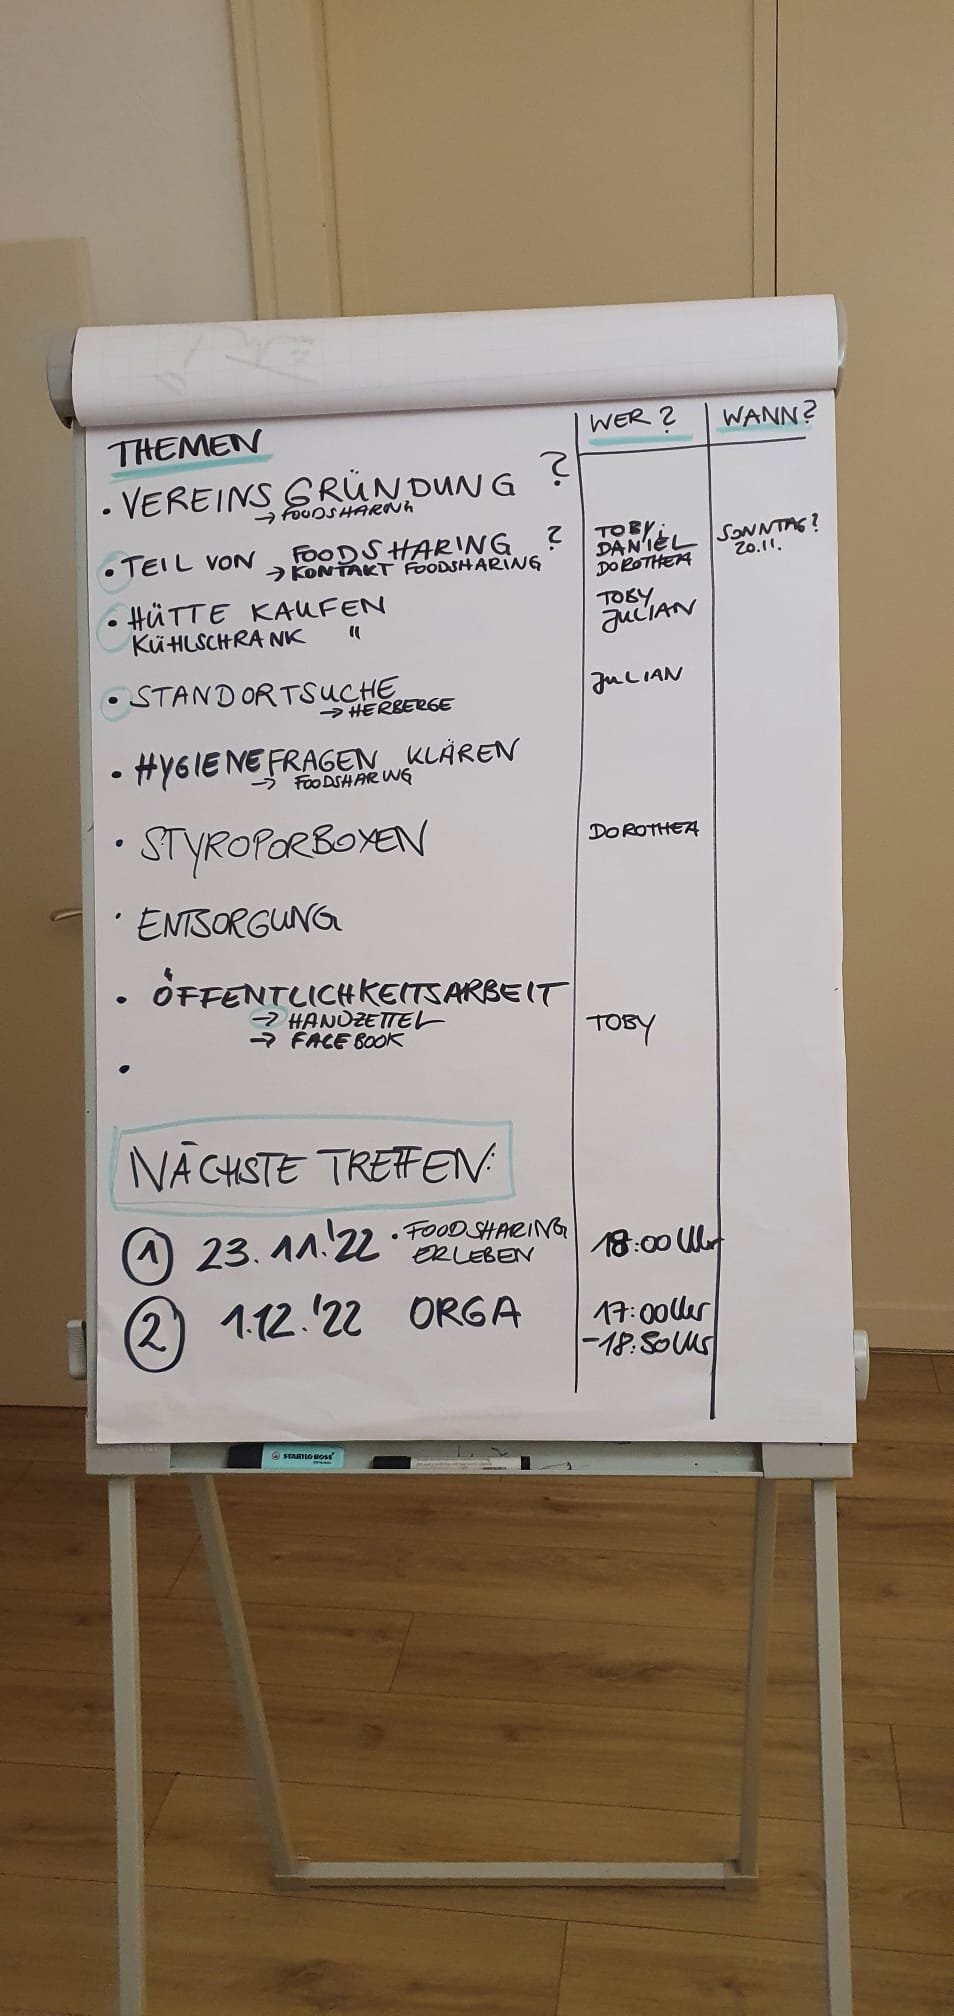 THEMEN
WER?
WANN?
• VEREINSGRÜNDUNG ?
→ FOODSHARING
• TEIL VON FOODSHARING ?
→ KONTAKT FOODSHARING
TOBY,
DANIEL
DOROTHEA
SONNTAG?
20.11.
• HÜTTE KAUFEN
KÜHLSCHRANK "
TOBY
JULIAN
• STANDORTSUCHE
→ HERBERGE
JULIAN
• HYGIENEFRAGEN KLÄREN
→ FOODSHARING
• STYROPORBOXEN
DOROTHEA
• ENTSORGUNG
• ÖFFENTLICHKEITSARBEIT
→ HANDZETTEL
→ FACEBOOK
TOBY
•
NÄCHSTE TREFFEN:
① 23.11.'22 • FOODSHARING
ERLEBEN
18:00 Uhr
② 1.12.'22 ORGA
17:00 Uhr
-18:30 Uhr
STABILO BOSS